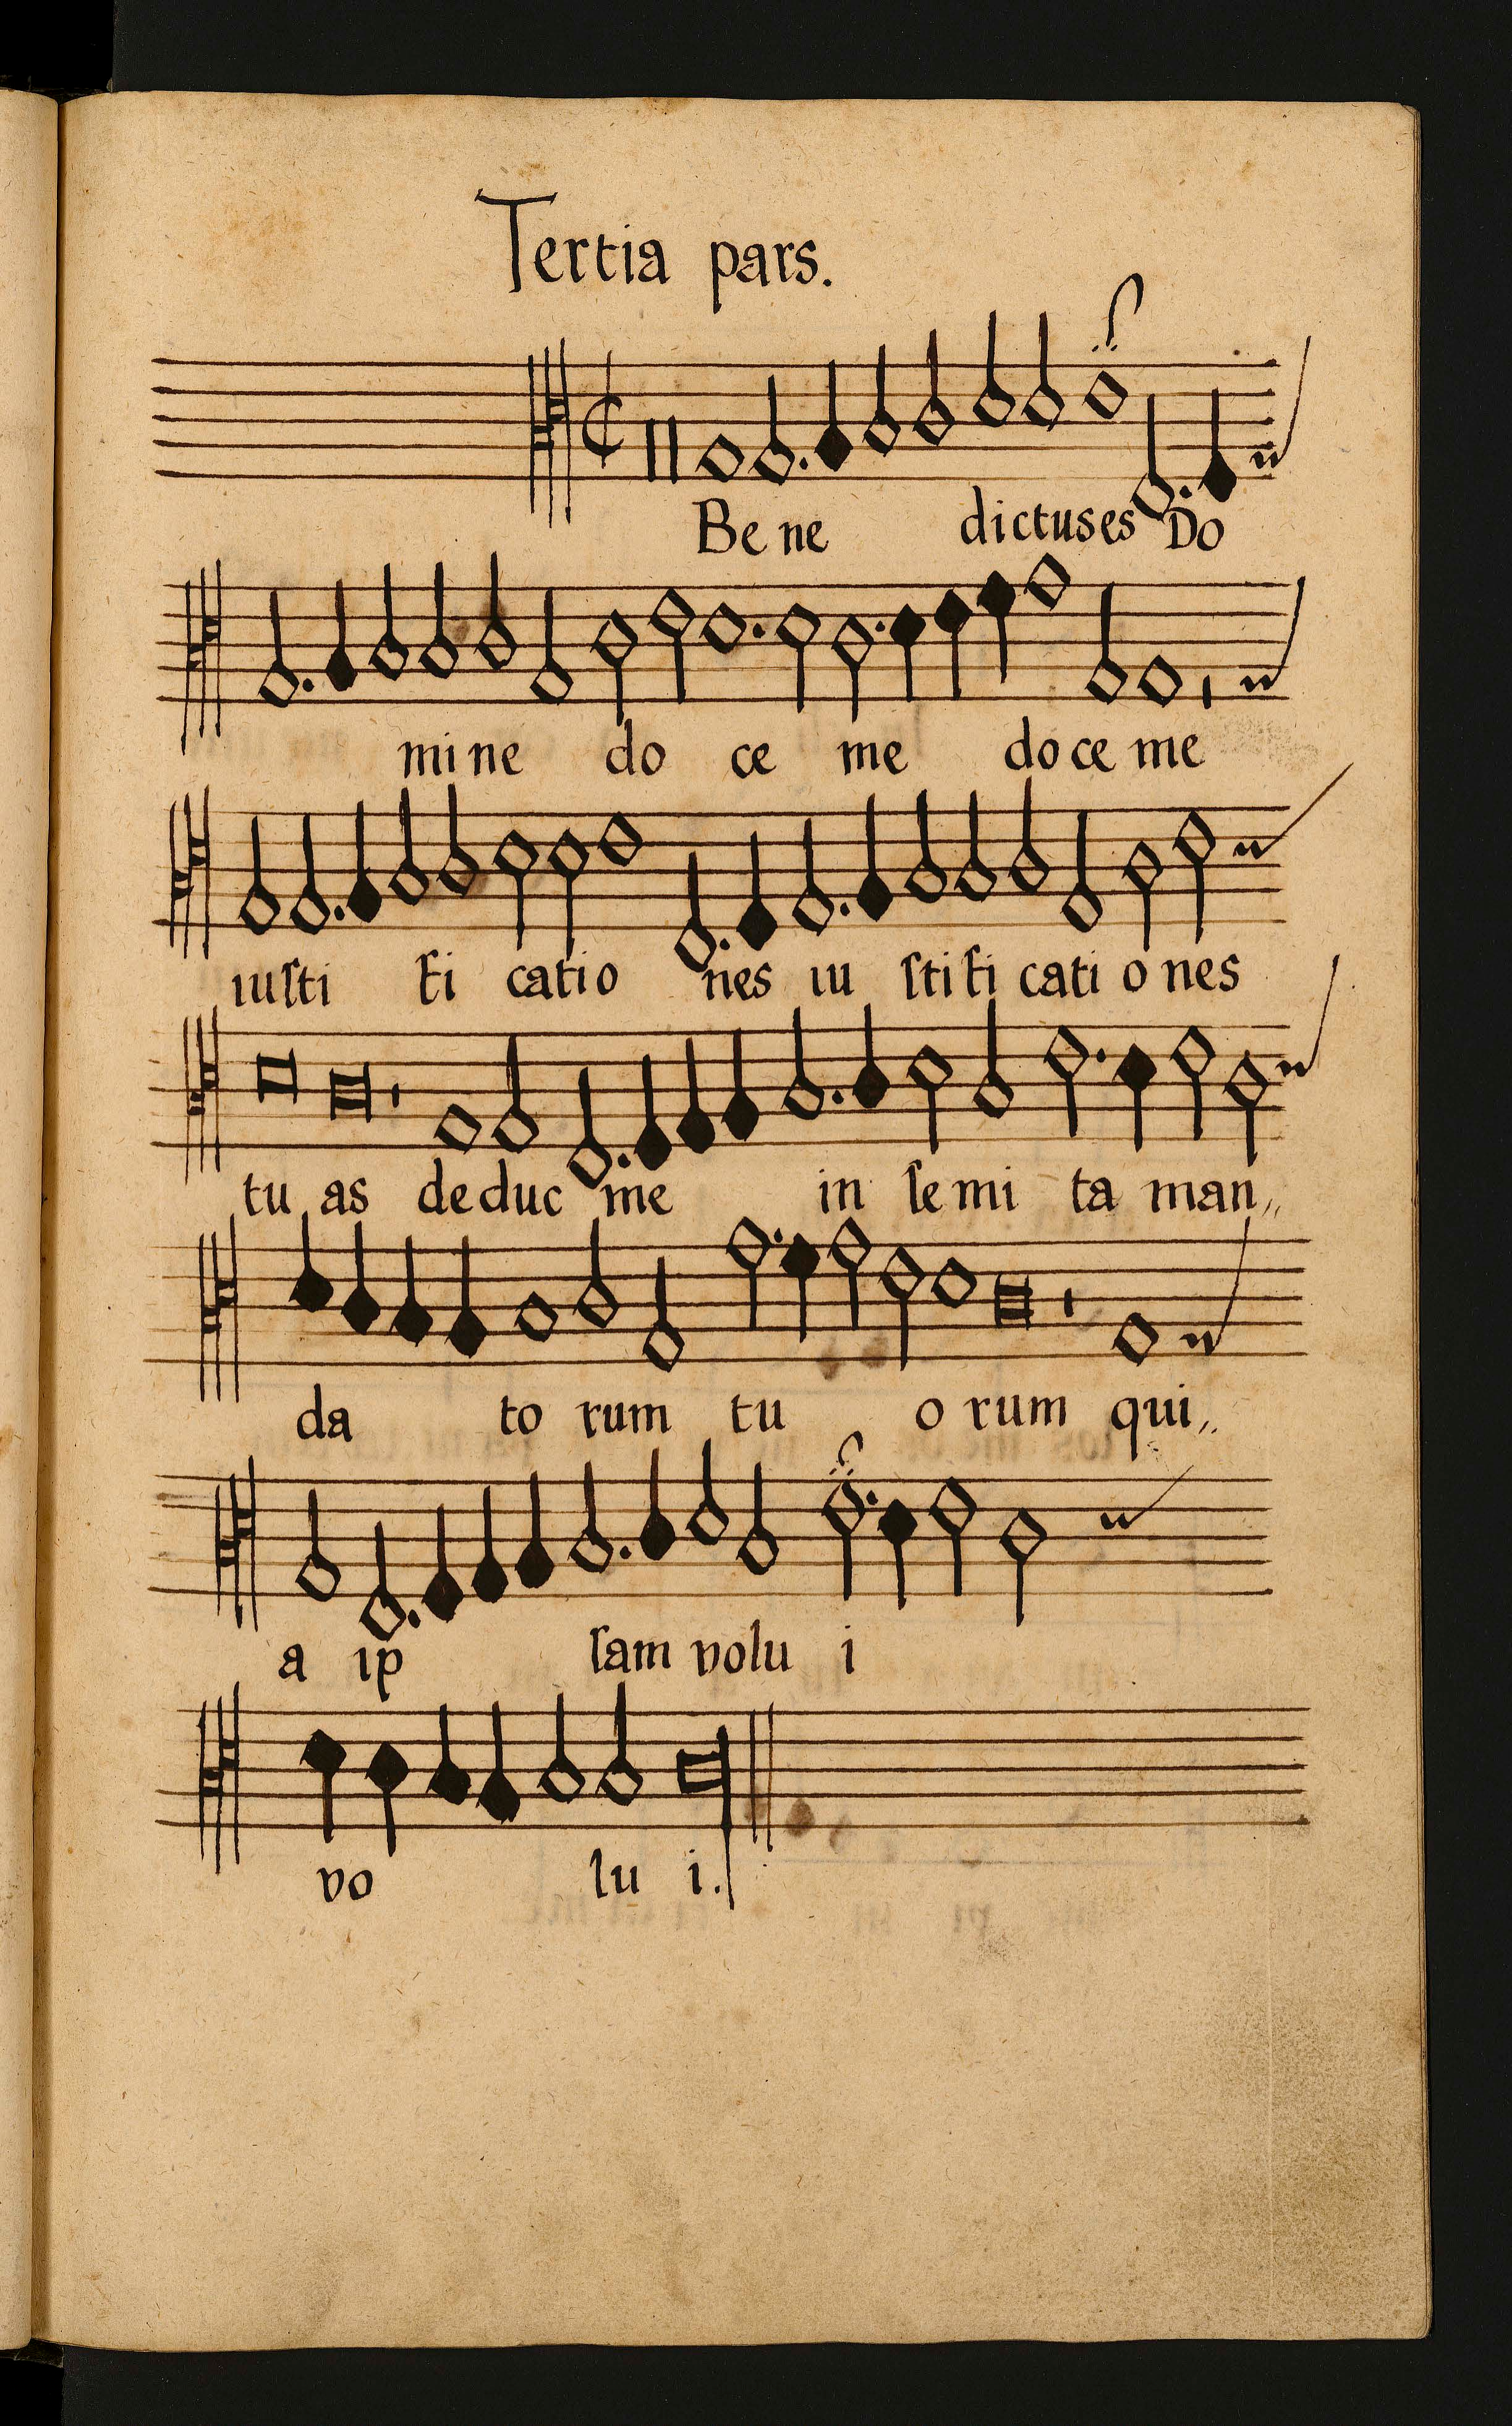 Tertia pars.
Be ne dictus es Do
mi ne do ce me do ce me
iuſti fi catio nes iu ſti fi cati o nes
tu as de duc me in ſe mi ta man,,
da to rum tu o rum qui,,
a ip ſam volu i
vo lu i.